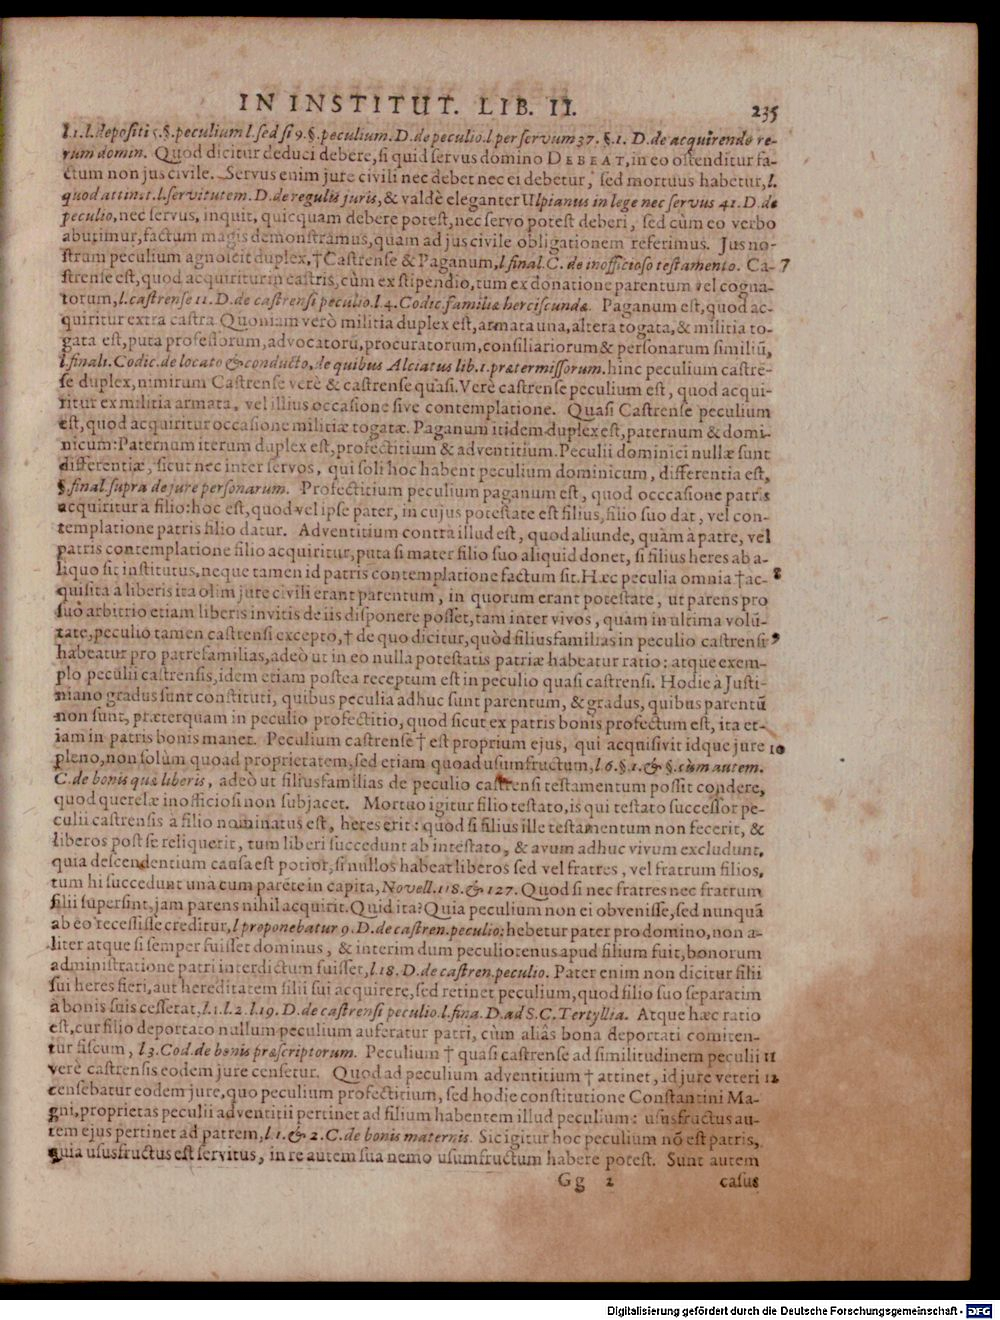 IN INSTITUT. LIB. II. 235
l.1.l.depositi 5.§.peculium l.sed si 9.§.peculium.D.de peculio.l.per servum 37. §.1. D.de acquirendo re-
rum domin. Quod dicitur deduci debere, si quid servus domino DEBEAT, in eo ostenditur fa-
ctum non jus civile. Servus enim jure civili nec debet nec ei debetur, sed mortuus habetur, l.
quod attinet.l.servitutem.D.de regulis juris, & valdè eleganter Ulpianus in lege nec servus 41. D.de
peculio, nec servus, inquit, quicquam debere potest, nec servo potest deberi, sed cùm eo verbo
abutimur, factum magis demonstramus, quam ad jus civile obligationem referimus. Jus no-
strum peculium agnoscit duplex, † Castrense & Paganum, l.final.C. de inofficioso testamento. Ca- 7
strense est, quod acquiritur in castris, cùm ex stipendio, tum ex donatione parentum vel cogna-
torum, l.castrense 11. D.de castrensi peculio.l.4. Codic.familiæ herciscundæ. Paganum est, quod ac-
quiritur extra castra Quoniam verò militia duplex est, armata una, altera togata, & militia to-
gata est, puta professorum, advocatorũ, procuratorum, consiliariorum & personarum similiũ,
l.final1.Codic.de locato & conducto, de quibus Alciatus lib.1.prætermissorum. hinc peculium castre-
se duplex, nimirum Castrense verè & castrense quasi. Verè castrense peculium est, quod acqui-
ritur ex militia armata, vel illius occasione sive contemplatione. Quasi Castrense peculium
est, quod acquiritur occasione militiæ togatæ. Paganum itidem duplex est, paternum & domi-
nicum: Paternum iterum duplex est, profectitium & adventitium. Peculii dominici nullæ sunt
differentiæ, sicut nec inter servos, qui soli hoc habent peculium dominicum, differentia est,
§.final.supra de jure personarum. Profectitium peculium paganum est, quod occcasione patris
acquiritur a filio: hoc est, quod vel ipse pater, in cujus potestate est filius, filio suo dat, vel con-
templatione patris filio datur. Adventitium contrà illud est, quod aliunde, quàm à patre, vel
patris contemplatione filio acquiritur, puta si mater filio suo aliquid donet, si filius heres ab a-
liquo sit institutus, neque tamen id patris contemplatione factum sit. Hæc peculia omnia † ac- 8
quisita à liberis ita olim jure civili erant parentum, in quorum erant potestate, ut parens pro
suo arbitrio etiam liberis invitis de iis disponere posset, tam inter vivos, quam in ultima volũ-
tate, peculio tamen castrensi excepto, † de quo dicitur, quòd filiusfamilias in peculio castrensi 9
habeatur pro patrefamilias, adeò ut in eo nulla potestatis patriæ habeatur ratio: atque exem-
plo peculii castrensis, idem etiam postea receptum est in peculio quasi castrensi. Hodie à Justi-
niano gradus sunt constituti, quibus peculia adhuc sunt parentum, & gradus, quibus parentũ
non sunt, præterquam in peculio profectitio, quod sicut ex patris bonis profectum est, ita et-
iam in patris bonis manet. Peculium castrense † est proprium ejus, qui acquisivit idque jure 10
pleno, non solùm quoad proprietatem, sed etiam quoad usumfructum, l.6.§.1.& §.cùm autem.
C.de bonis quæ liberis, adeò ut filiusfamilias de peculio castrensi testamentum possit condere,
quod querelæ inofficiosi non subjacet. Mortuo igitur filio testato, is qui testato successor pe-
culii castrensis à filio nominatus est, heres erit: quod si filius ille testamentum non fecerit, &
liberos post se reliquerit, tum liberi succedunt ab intestato, & avum adhuc vivum excludunt,
quia descendentium causa est potior, si nullos habeat liberos sed vel fratres, vel fratrum filios,
tum hi succedunt unà cum parẽte in capita, Novell.118.& 127. Quod si nec fratres nec fratrum
filii supersint, jam parens nihil acquirit. Quid ita? Quia peculium non ei obvenisse, sed nunquã
ab eo recessisse creditur, l.proponebatur 9.D.de castren.peculio: hebetur pater pro domino, non a-
liter atque si semper fuisset dominus, & interim dum peculio tenus apud filium fuit, bonorum
administratione patri interdictum fuisset, l.18.D.de castren.peculio. Pater enim non dicitur filii
sui heres fieri, aut hereditatem filii sui acquirere, sed retinet peculium, quod filio suo separatim
à bonis suis cesserat, l.1.l.2.l.19.D.de castrensi peculio.l.fina.D.ad S.C.Tertyllia. Atque hæc ratio
est, cur filio deportato nullum peculium auferatur patri, cùm aliâs bona deportati comiten-
tur fiscum, l.3.Cod.de bonis præscriptorum. Peculium † quasi castrense ad similitudinem peculii 11
verè castrensis eodem jure censetur. Quod ad peculium adventitium † attinet, id jure veteri 12
censebatur eodem jure, quo peculium profectitium, sed hodie constitutione Constantini Ma-
gni, proprietas peculii adventitii pertinet ad filium habentem illud peculium: ususfructus au-
tem ejus pertinet ad patrem, l.1.& 2.C.de bonis maternis. Sic igitur hoc peculium nõ est patris,
quia ususfructus est servitus, in re autem sua nemo usumfructum habere potest. Sunt autem
Gg 2 casus
Digitalisierung gefördert durch die Deutsche Forschungsgemeinschaft - DFG